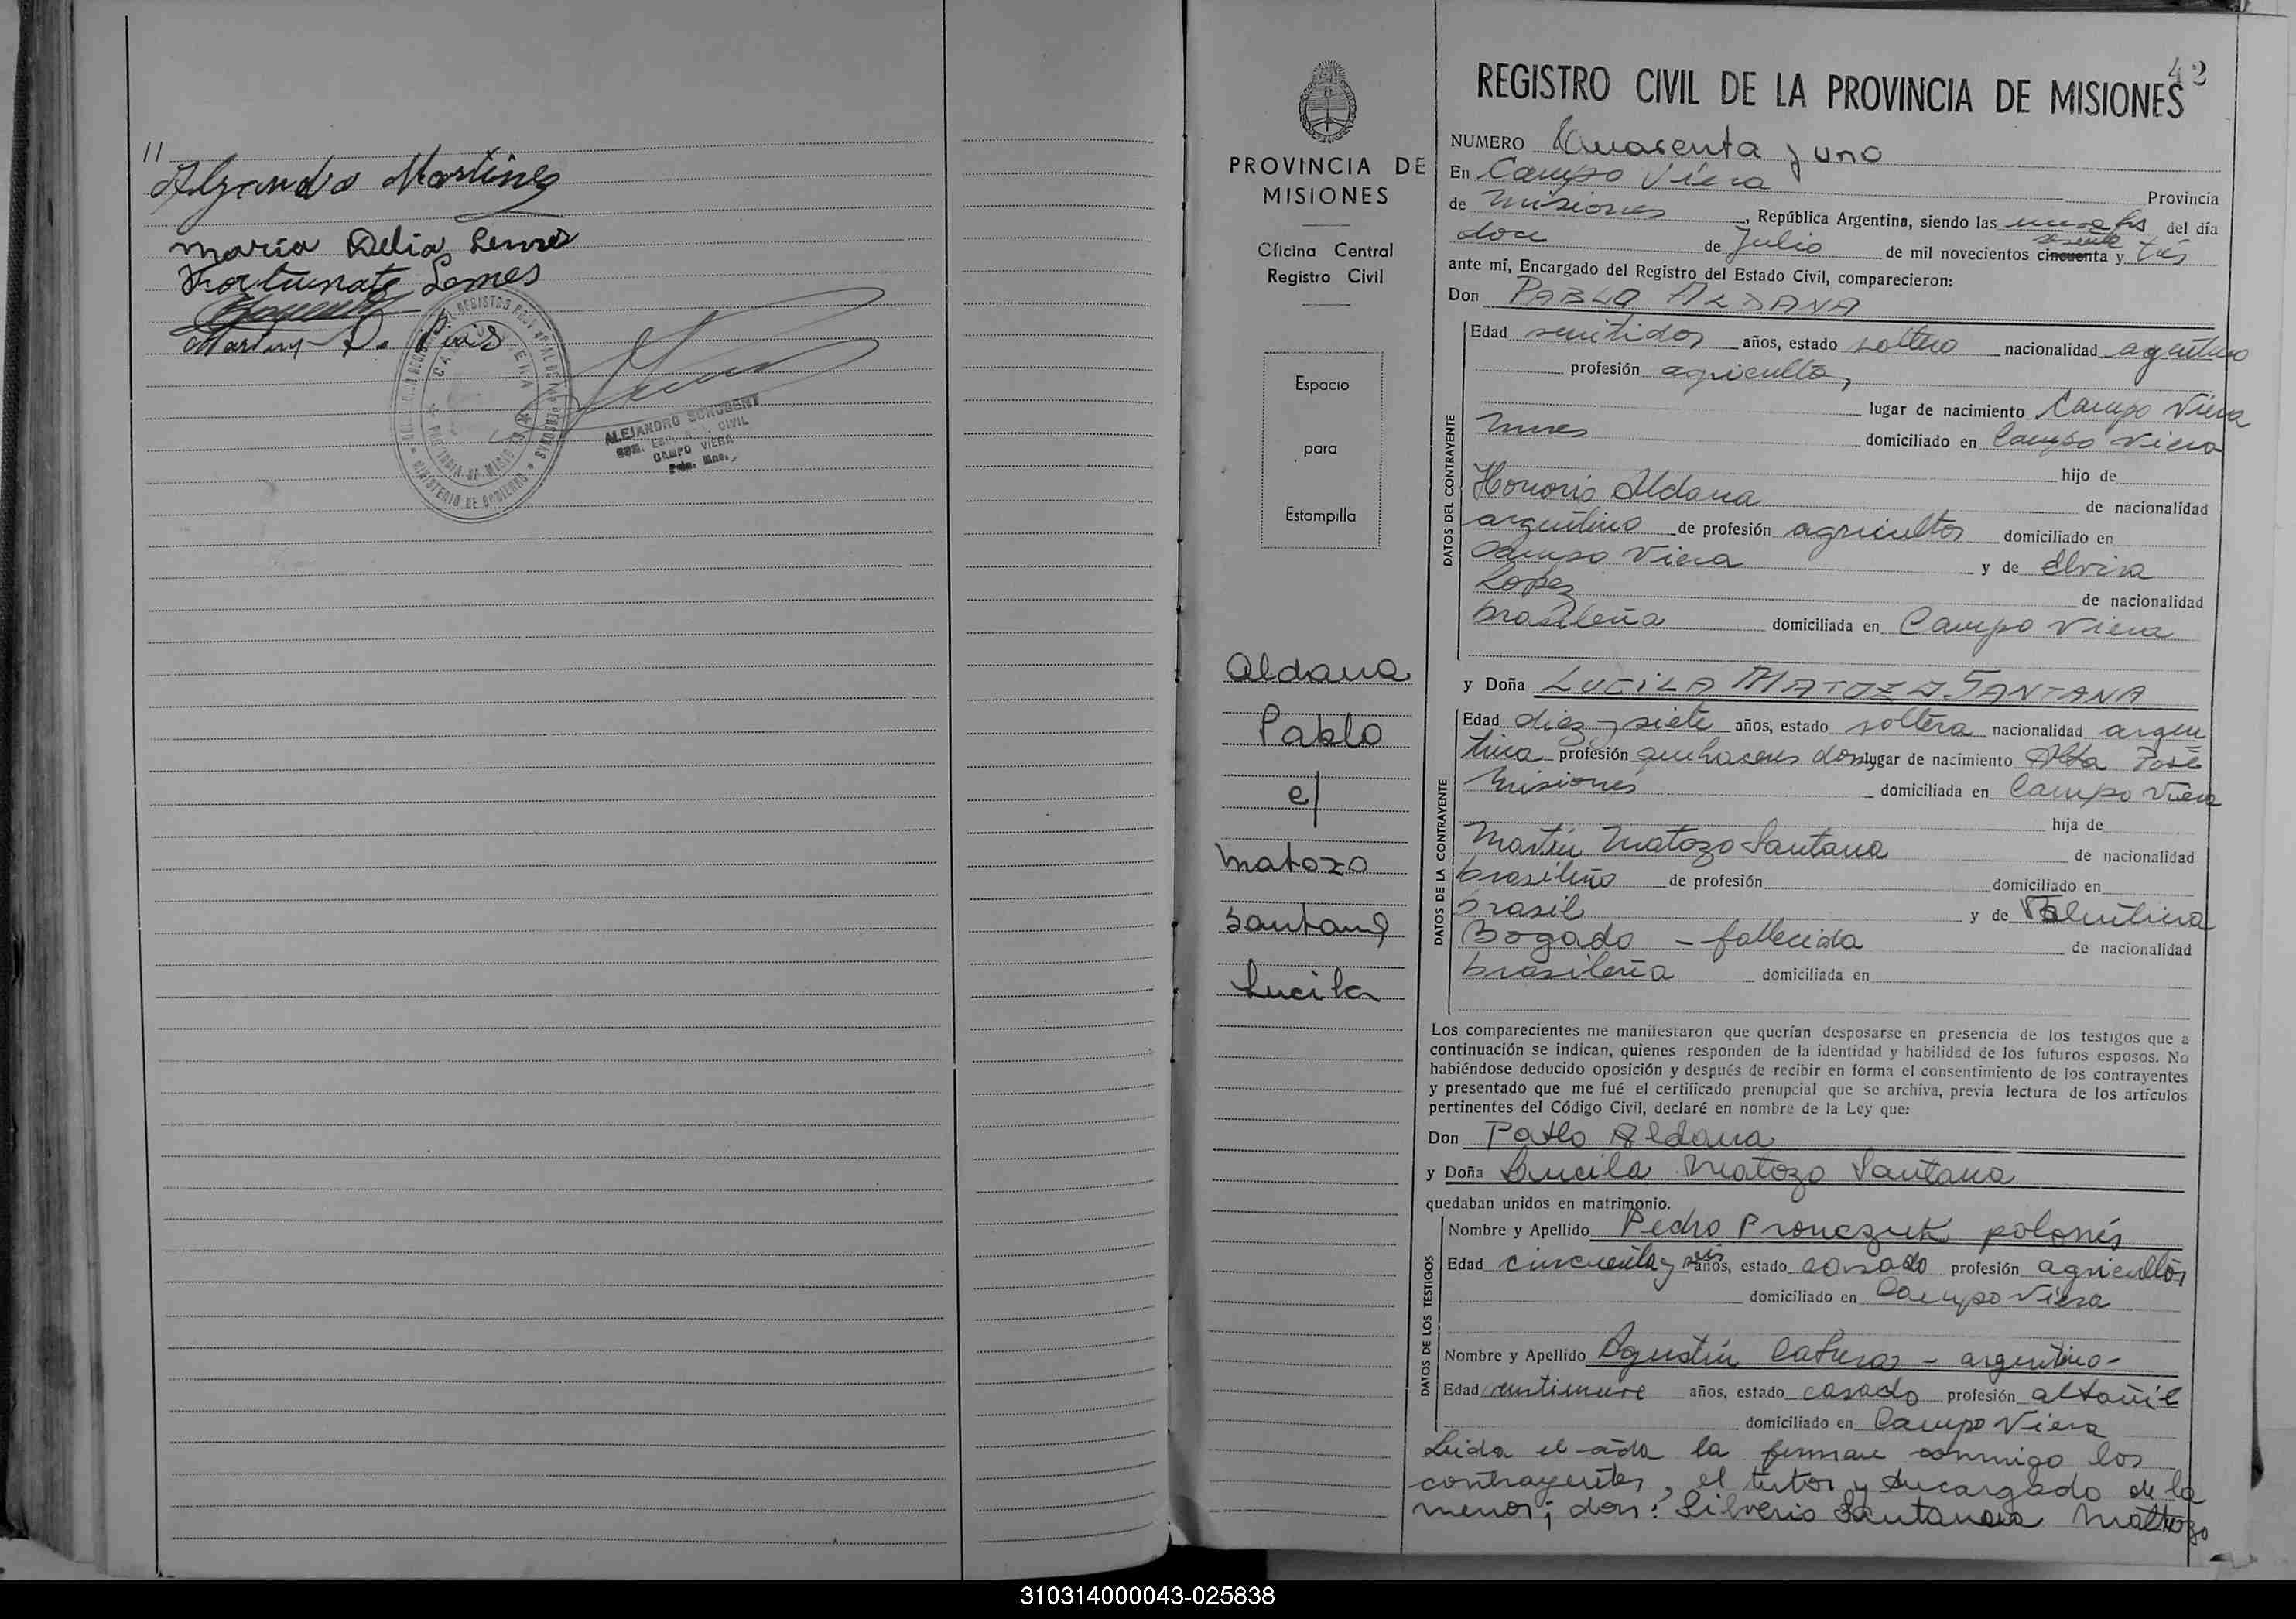 //
Alejandro Martinez
Maria Delia Lemes
Fortunato Lemes
ALEJANDRO SCHUBERT
CIVIL
CAMPO VIERA
42
REGISTRO CIVIL DE LA PROVINCIA DE MISIONES
PROVINCIA DE
MISIONES
Oficina Central
Registro Civil
Espacio
para
Estampilla
Aldana
Pablo
c/
Matozo
Santana
Lucila
NUMERO Cuarenta y uno
En Campo Viera Provincia
de Misiones, República Argentina, siendo las del día
doce de Julio de mil novecientos cincuenta sesenta y tres
ante mí, Encargado del Registro del Estado Civil, comparecieron:
Don PABLO ALDANA
Edad veintidos años, estado soltero nacionalidad argentino
profesión agricultor
lugar de nacimiento Campo Viera
Mnes domiciliado en Campo Viera
hijo de
Honorio Aldana de nacionalidad
argentino de profesión agricultor domiciliado en
Campo Viera y de Elvira
Lopez de nacionalidad
brasileña domiciliada en Campo Viera
DATOS DEL CONTRAYENTE
y Doña LUCILA MATOZO SANTANA
Edad diez y siete años, estado soltera nacionalidad argen
tina profesión quehaceres dom lugar de nacimiento Alba Posse
Misiones domiciliada en Campo Viera
hija de
Martín Matozo Santana de nacionalidad
brasileño de profesión domiciliado en
Brasil y de Valentina
Bogado - fallecida de nacionalidad
brasileña domiciliada en
DATOS DE LA CONTRAYENTE
Los comparecientes me manifestaron que querían desposarse en presencia de los testigos que a
continuación se indican, quienes responden de la identidad y habilidad de los futuros esposos. No
habiéndose deducido oposición y después de recibir en forma el consentimiento de los contrayentes
y presentado que me fué el certificado prenupcial que se archiva, previa lectura de los artículos
pertinentes del Código Civil, declaré en nombre de la Ley que:
Don Pablo Aldana
y Doña Lucila Matozo Santana
quedaban unidos en matrimonio.
Nombre y Apellido Pedro Pronczuk polonés
Edad cincuenta y seis años, estado casado profesión agricultor
domiciliado en Campo Viera
Nombre y Apellido Agustín - argentino -
Edad años, estado casado profesión albañil
domiciliado en Campo Viera
DATOS DE LOS TESTIGOS
Leida el acta la firman conmigo los
contrayentes, el tutor y Encargado de la
menor; don: Silverio Santana Mattozo
310314000043-025838